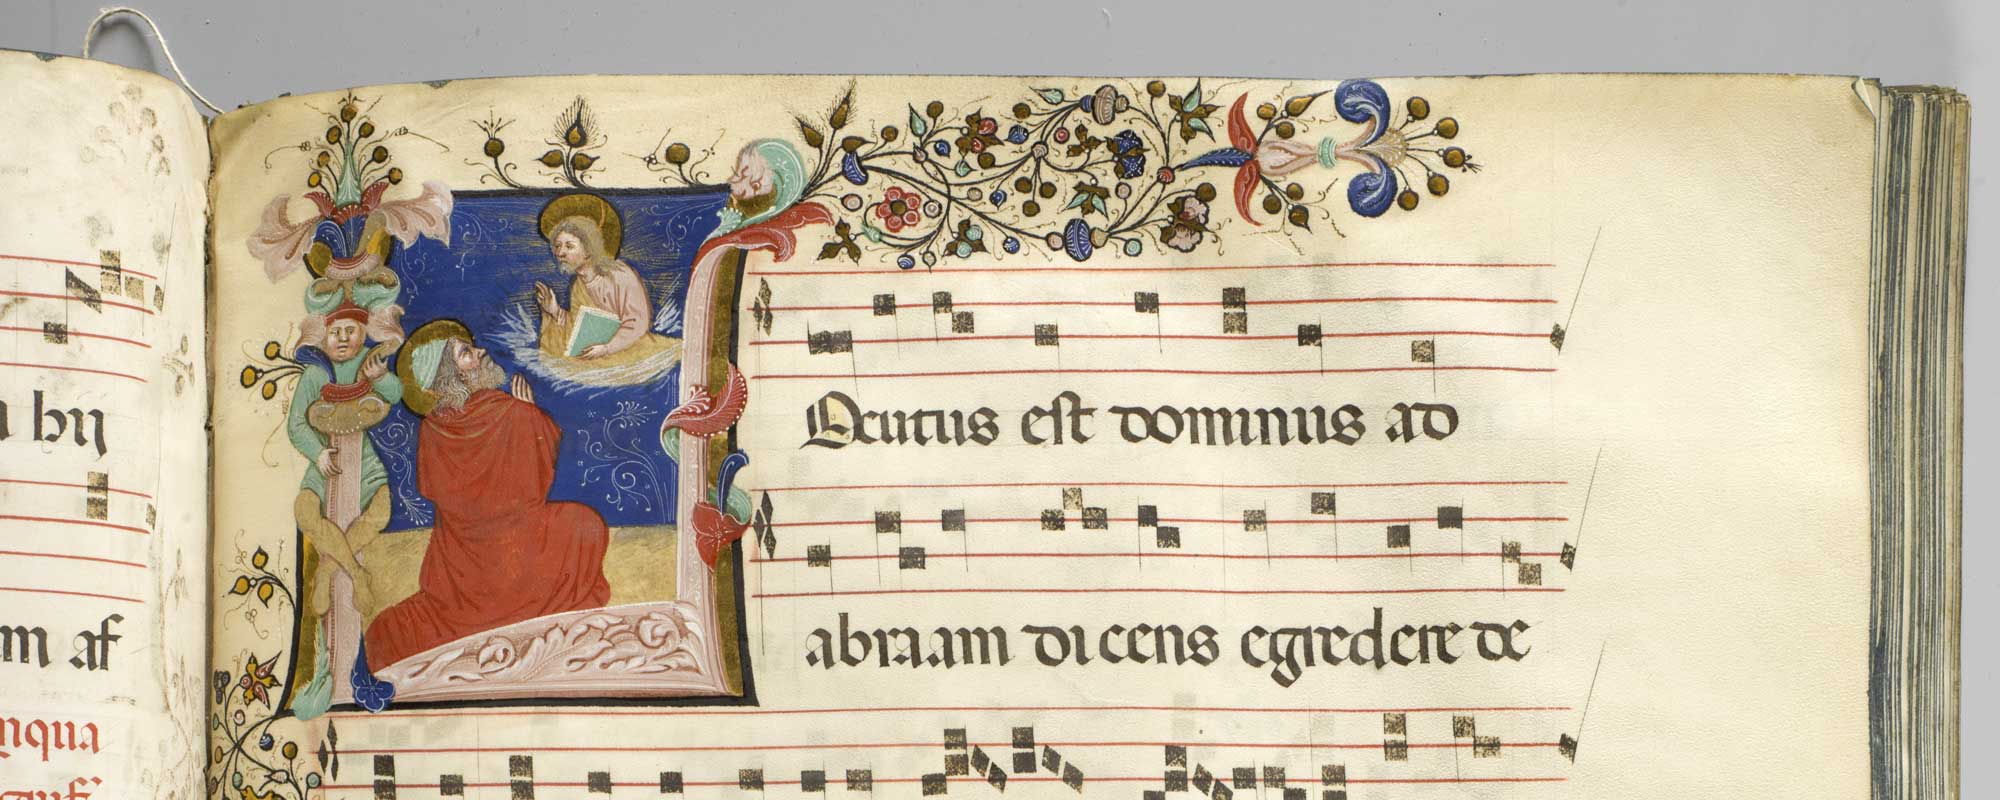 bij
m af
nqua
LOcutus est dominus ad
abraam dicens egredere de